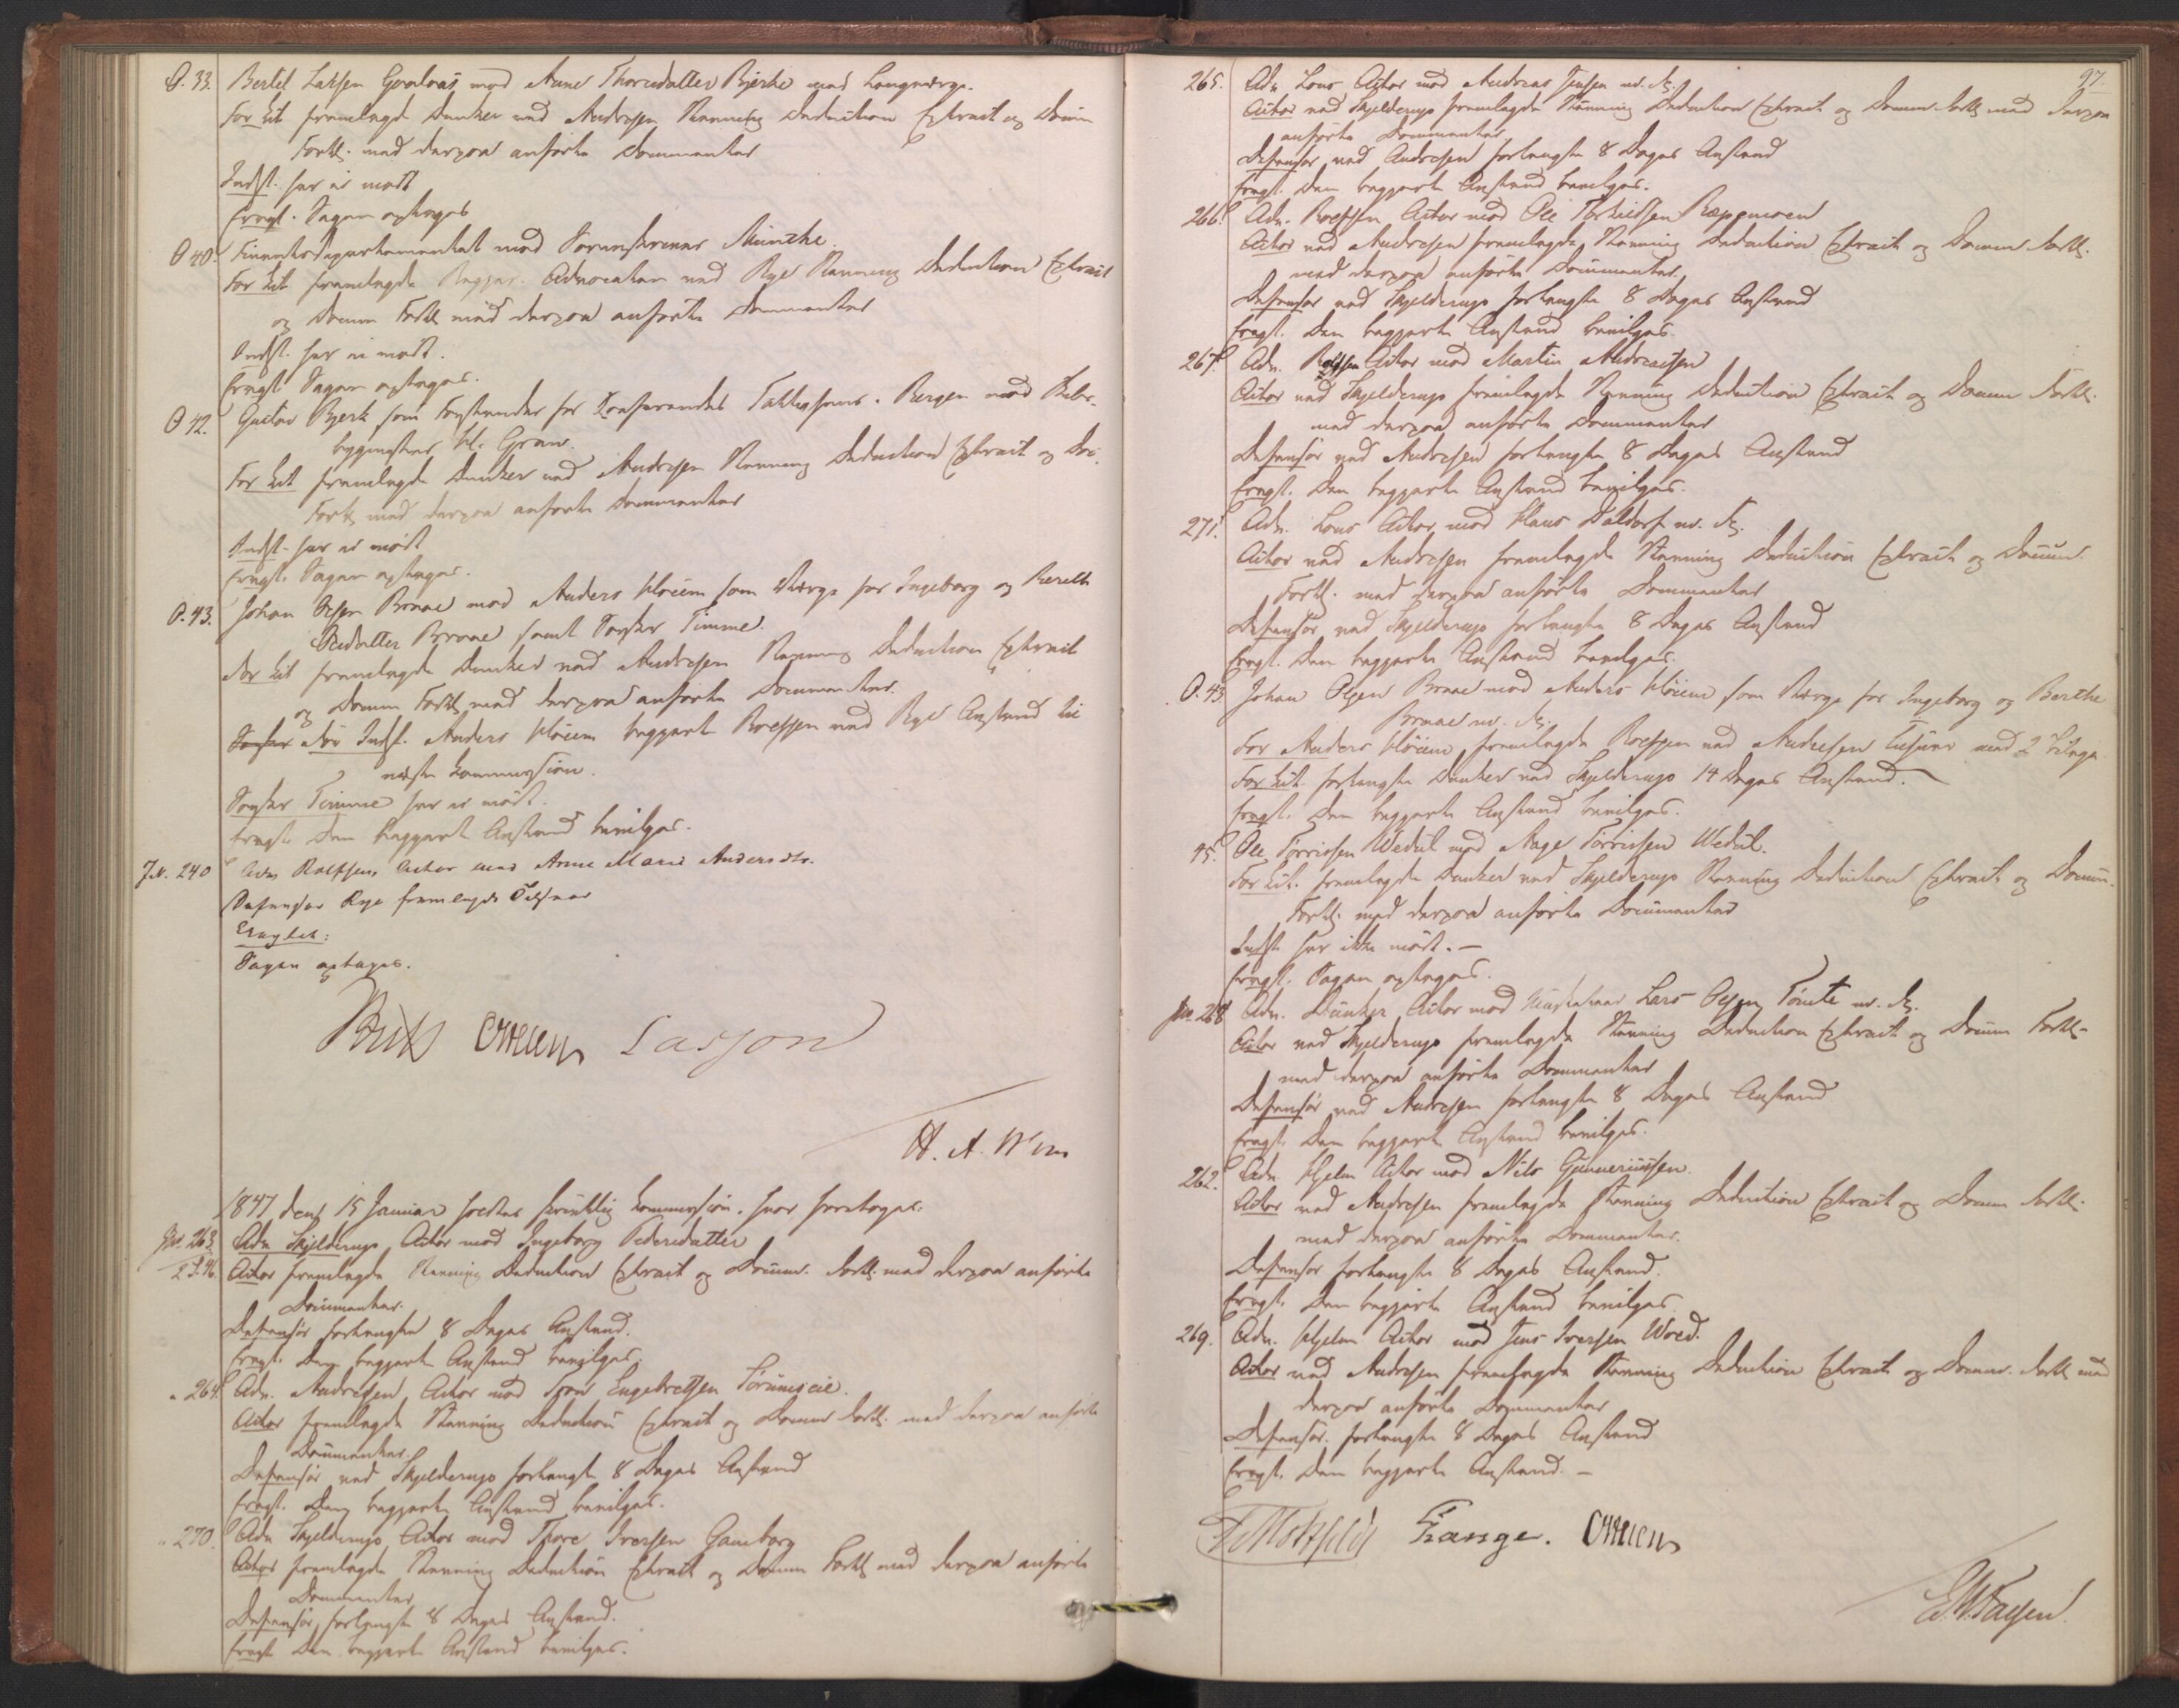 O. 33. Bertel Larsen mod Anne Thoresdatter Bjerke med Laugværge.
For Cit fremlagde Dunker ved Andresen Stævning Deduction Extract og Docum
Fortl. med derpaa anførte Documenter
Indst. har ei mødt
Eragt. Sagen optages
O 40. Finantsdepartementet mod Sorenskriver Münche.
For Cit fremlagde Regjer. Advocaten ved Rye Stævning Deduction Extract
og Docum Fortl med derpaa anførte Documenter
Indst. har ei mødt.
Eragt. Sagen optages.
O 42. Gustav Bjerk som Forstander for i Bergen mod
bygmester H. Gran.
For Cit fremlagde Dunker ved Andresen Stævning Deduction Extract og Doc.
Fortl med derpaa anførte Documenter
Indst. har ei mødt
Eragt. Sagen optages.
O. 43. Johan Olsen Braae mod Anders Kløien som Værge for Ingeborg og Berethe
Braae samt Timme.
For Cit fremlagde Dunker ved Andresen Stævning Deduction Extract
og Docum Fortl med derpaa anførte Documenter.
For Indst. Anders begjært Rolfsen ved Rye Anstand til
næste Commission.
Timme har ei mødt.
Eragt. Den begjærte Anstand bevilges.
J. N. 240 Adv Rolfsen, Actor mod Anne Marie Andersdtr.
Defensor Rye fremlagde Tilsvar
Eragtet:
Sagen optages.
Lasson
H. A.
1847 den 15 Januar holdtes skriftlig Commission, hvor foretoges:
Jno. 263. Adv. Skjelderup Actor mod Ingeborg Pedersdatter
Actor fremlagde Stævning Deduction Extract og Docum. Fortl. med derpaa anførte
Documenter.
Defensor forlangte 8 Dages Anstand.
Eragt. Den begjærte Anstand bevilges.
" 264. Adv. Andresen, Actor mod Engebretsen
Actor fremlagde Stævning Deduction Extract og Docum Fortl. med derpaa anførte
Documenter.
Defensor ved Skjelderup forlangte 8 Dages Anstand
Eragt. Den begjærte Anstand bevilges.
" 270. Adv Skjelderup Actor mod Thore Iversen Gamborg
Actor fremlagde Stævning Deduction Extract og Docum Fortl med derpaa anførte
Documenter
Defensor forlangte 8 Dages Anstand.
Eragt Den begjærte Anstand bevilges.
97.
265. Adv. Lous Actor mod Andreas Jensen m. fl.
Actor ved Skjelderup fremlagde Stævning Deduction Extract og Docum. Fortl med derpaa
anførte Documenter
Defensor ved Andresen forlangte 8 Dages Anstand
Eragt. Den begjærte Anstand bevilges.
266. Adv. Rolfsen Actor mod Ole Torkildsen
Actor ved Andresen fremlagde Stævning Deduction Extract og Docum. Fortl.
med derpaa anførte Documenter.
Defensor ved Skjelderup forlangte 8 Dages Anstand
Eragt. Den begjærte Anstand bevilges.
267. Adv. Rolfsen Actor mod Martin Andreassen
Actor ved Skjelderup fremlagde Stævning Deduction Extract og Docum Fortl.
med derpaa anførte Documenter
Defensor ved Andresen forlangte 8 Dages Anstand
Eragt. Den begjærte Anstand bevilges.
271. Adv. Lous Actor mod Klaus Daldorf m. fl.
Actor ved Andresen fremlagde Stævning Deduction Extract og Docum.
Fortl. med derpaa anførte Documenter
Defensor ved Skjelderup forlangte 8 Dages Anstand
Eragt. Den begjærte Anstand bevilges.
O. 43 Johan Olsen Braae mod Anders Kløien som Værge for Ingeborg og Berthe
Braae m. fl.
For Anders Kløien fremlagde Rolfsen ved Andresen Tilsvar med 2 Bilage
For Cit. forlangte Dunker ved Skjelderup 14 Dages Anstand.
Eragt. Den begjærte Anstand bevilges.
45. Ole Torrissen Wedul mod Aage Torrissen Wedul.
For Cit. fremlagde Dunker ved Skjelderup Stævning Deduction Extract og Docum.
Fortl. med derpaa anførte Documenter
Indst har ikke mødt. —
Eragt. Sagen optages.
Jno. 268 Adv. Dunker Actor mod Lars Olsen Tømte m. fl.
Actor ved Skjelderup fremlagde Stævning Deduction Extract og Docum Fortl.
med derpaa anførte Documenter
Defensor ved Andresen forlangte 8 Dages Anstand
Eragt. Den begjærte Anstand bevilges.
262. Adv. Hjelm Actor mod Nils Gunneriussen.
Actor ved Andresen fremlagde Stævning Deduction Extract og Docum Fortl.
med derpaa anførte Documenter.
Defensor forlangte 8 Dages Anstand.
Eragt. Den begjærte Anstand bevilges
269. Adv. Hjelm Actor mod Jens Iversen Woed.
Actor ved Andresen fremlagde Stævning Deduction Extract og Docum. Fortl med
derpaa anførte Documenter
Defensor. forlangte 8 Dages Anstand
Eragt. Den begjærte Anstand. —
Motzfeldt